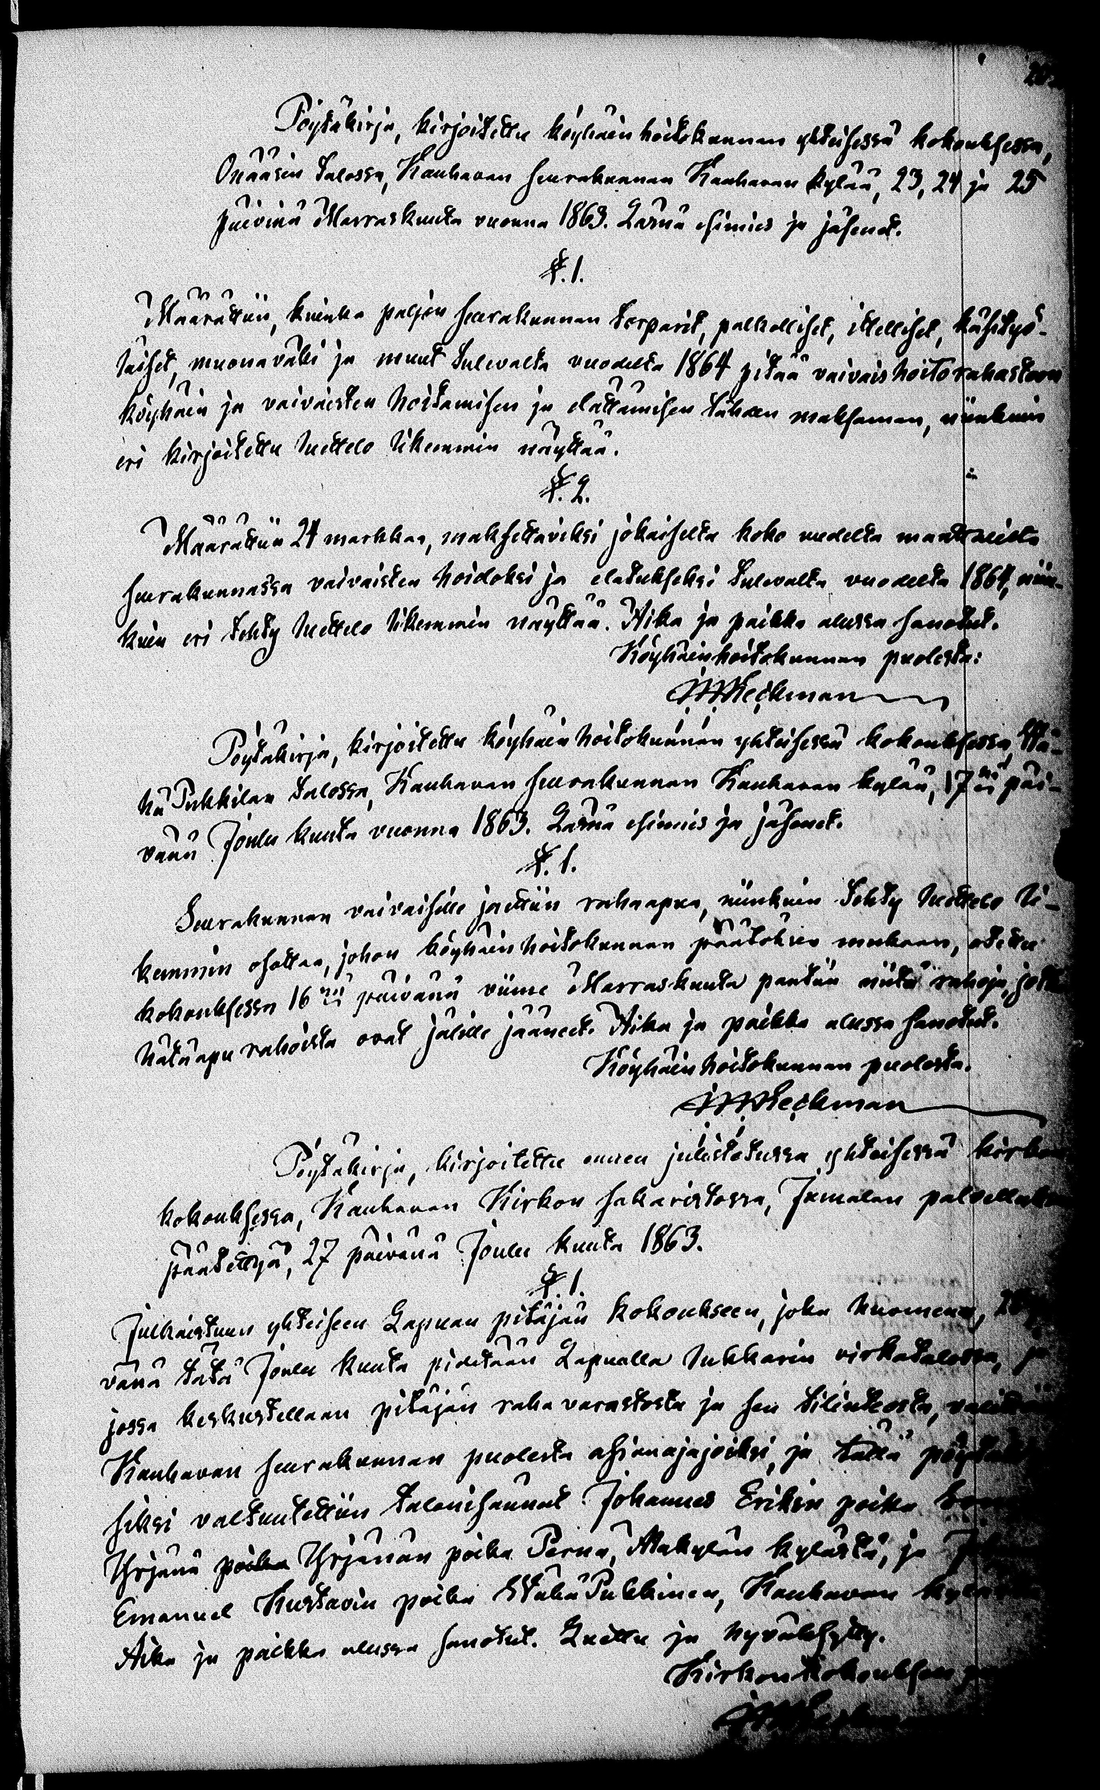 Pöytäkirja, kirjoitettu köyhäin hoitokunnan yhteisessä kokouksessa,
Onäsin talossa, Kauhavan seurakunnan Kauhavan kylää, 23, 24 ja 25
päivinä Marraskuuta vuonna 1863. Läsnä esimies ja jäsenet.
§. 1.
Määrättiin, kuinka paljon seurakunnan torparit, palkolliset, itselliset, käsityö-
läiset, muonaväki ja muut tulevalta vuodelta 1864 pitää vaivaishoitorahastoon
köyhäin ja vaivaisten hoitamisen ja elättämisen tähden maksaman, niinkuin
eri kirjoitettu luettelo likemmin näyttää.
§. 2.
Määrättiin 24 markkaa, maksettaviksi jokaiselta koko uudelta manttaalilta
seurakunnassa vaivaisten hoidoksi ja elatukseksi tulevalta vuodelta 1864, niin-
kuin eri tehty luettelo likemmin näyttää. Aika ja paikka alussa sanotut.
Köyhäinhoitokunnan puolesta:
J. W. Heikman
Pöytäkirja, kirjoitettu köyhäin hoitokunnan yhteisessä kokouksessa Wä-
hä Pukkilan talossa, Kauhavan seurakunnan Kauhavan kylää, 17 nä päi-
vänä Joulu kuuta vuonna 1863. Läsnä esimies ja jäsenet.
§. 1.
Seurakunnan vaivaisille jaettiin rahaapua, niinkuin tehty luettelo li-
kemmin osottaa, johon köyhäin hoitokunnan päätöksen mukaan, otettu
kokouksessa 16 nä päivänä viime Marraskuuta pantiin niitä rahoja, jotka
hätäapu rahoista ovat jälille jääneet. Aika ja paikka alussa sanotut.
Köyhäin hoitokunnan puolesta.
J. W. Heikman
Pöytäkirja, kirjoitettu ennen julistetussa yhteisessä kirkon
kokouksessa, Kauhavan Kirkon sakaristossa, Jumalan palveluksen
päätettyä, 27 päivänä Joulu kuuta 1863.
§. 1.
Julkaistuun yhteiseen Lapuan pitäjän kokoukseen, joka huomenna,
vänä tätä Joulu kuuta pidetään Lapualla Lukkarin virkatalossa, ja
jossa keskustellaan pitäjän raha varastosta ja sen tilinteosta, valittiin
Kauhavan seurakunnan puolesta asianajajoiksi, ja tällä
siksi valtuutettiin talonisännät Johannes Erikin poika
Yrjänä poika Yrjänän poika Perna, Alakylän kylästä, ja
Emanuel Kustavin poika Wähä Pukkinen, Kauhavan
Aika ja paikka alussa sanotut. Luettu ja hyväksytty.
Kirkon kokouksen